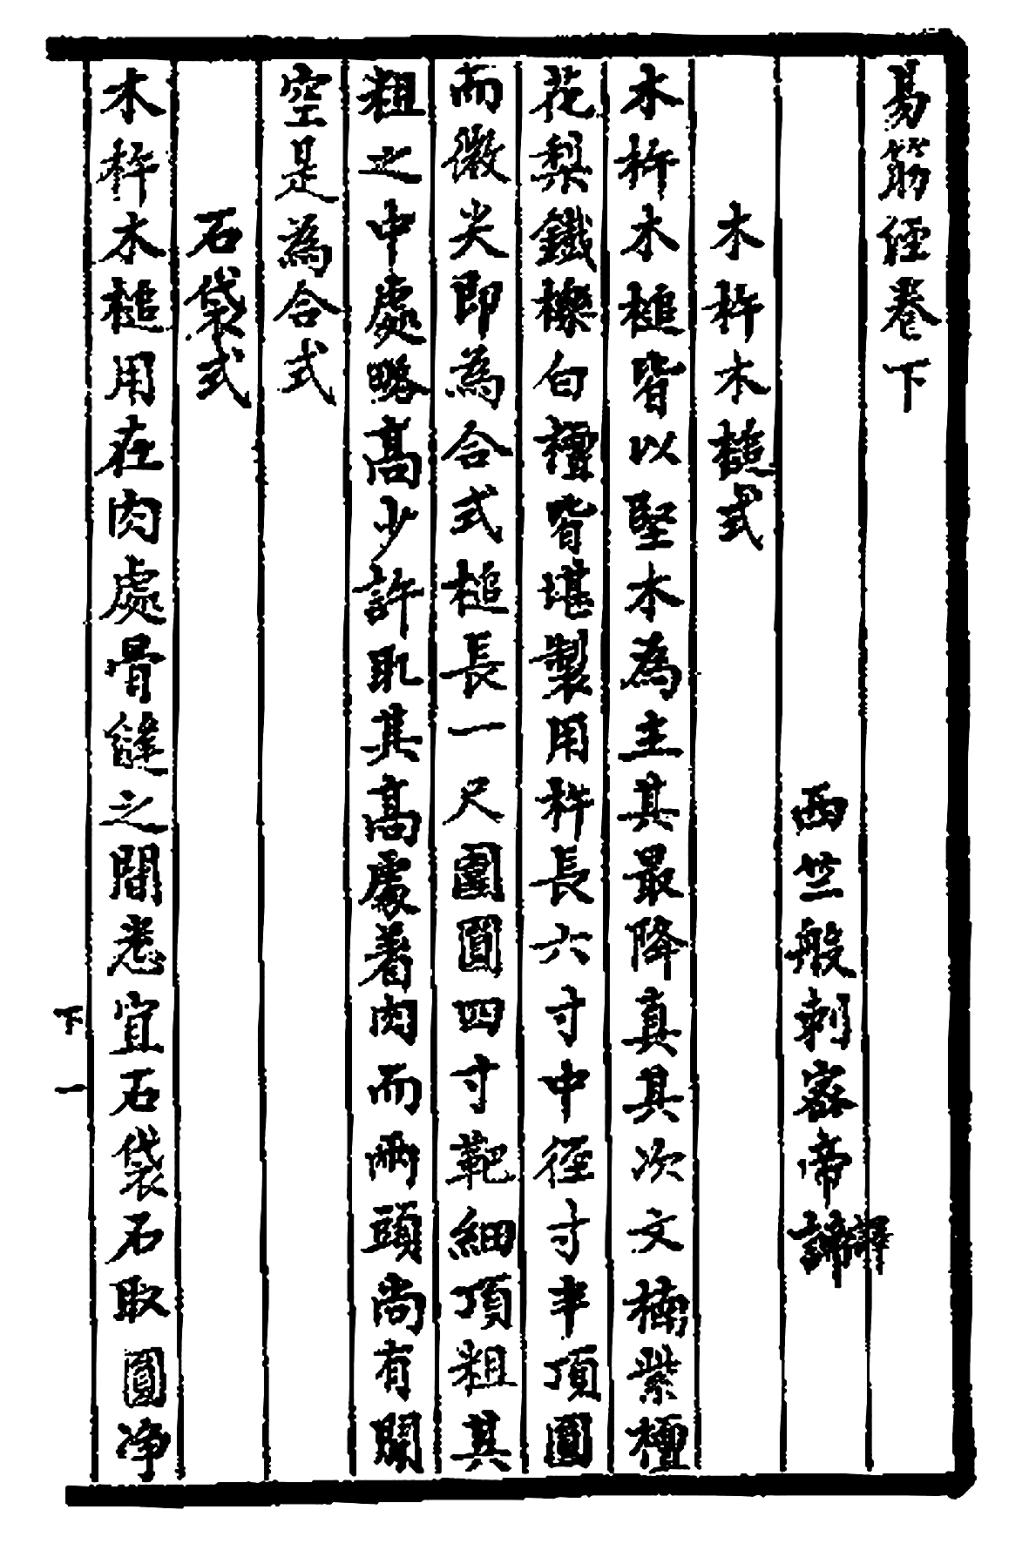 易筋經卷下
西竺般剌密帝諦譯
木杵木槌式
木杵木槌皆以堅木為主其最降真其次文楠紫檀
花梨鐵櫟白檀皆堪製用杵長六寸中徑寸半頂圓
而微尖即為合式槌長一尺圍圓四寸靶細頂粗其
粗之中處略高少許取其高處着肉而兩頭尚有閒
空是為合式
石袋式
木杵木槌用在肉處骨縫之間悉宜石袋石取圓净
下一